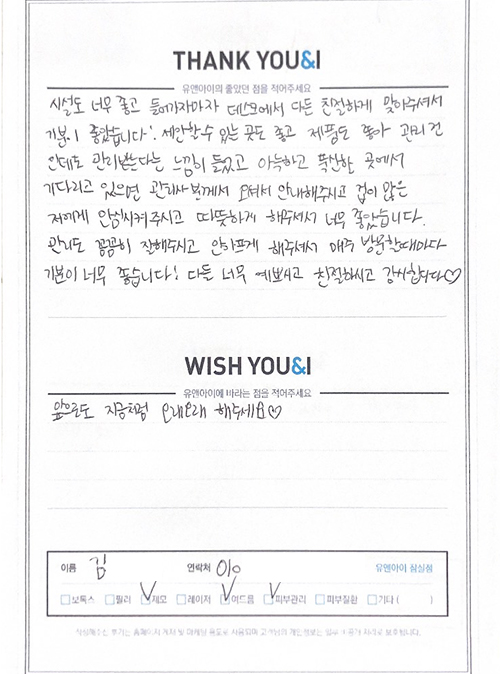 THANK YOU&I
유앤아이의 좋았던 점을 적어주세요
시설도 너무 좋고 들어가자마자 데스크에서 다들 친절하게 맞아주셔서
기분이 좋았습니다! 세안할수 있는 곳도 좋고 제품도 좋아 관리전
인데도 관리받는다는 느낌이 들었고 아늑하고 푹신한 곳에서
기다리고 있으면 관리사분께서 오셔서 안내해주시고 겁이 많은
저에게 안심시켜주시고 따뜻하게 해주셔서 너무 좋았습니다.
관리도 꼼꼼히 잘해주시고 안아프게 해주셔서 매주 방문할때마다
기분이 너무 좋습니다! 다들 너무 예쁘시고 친절하시고 감사합니다♡
WISH YOU&I
유앤아이에 바라는 점을 적어주세요
앞으로도 지금처럼 오래오래 해주세요♡
이름 김 연락처 010 유앤아이 잠실점
보톡스 필러 제모 레이저 여드름 피부관리 피부질환 기타 ( )